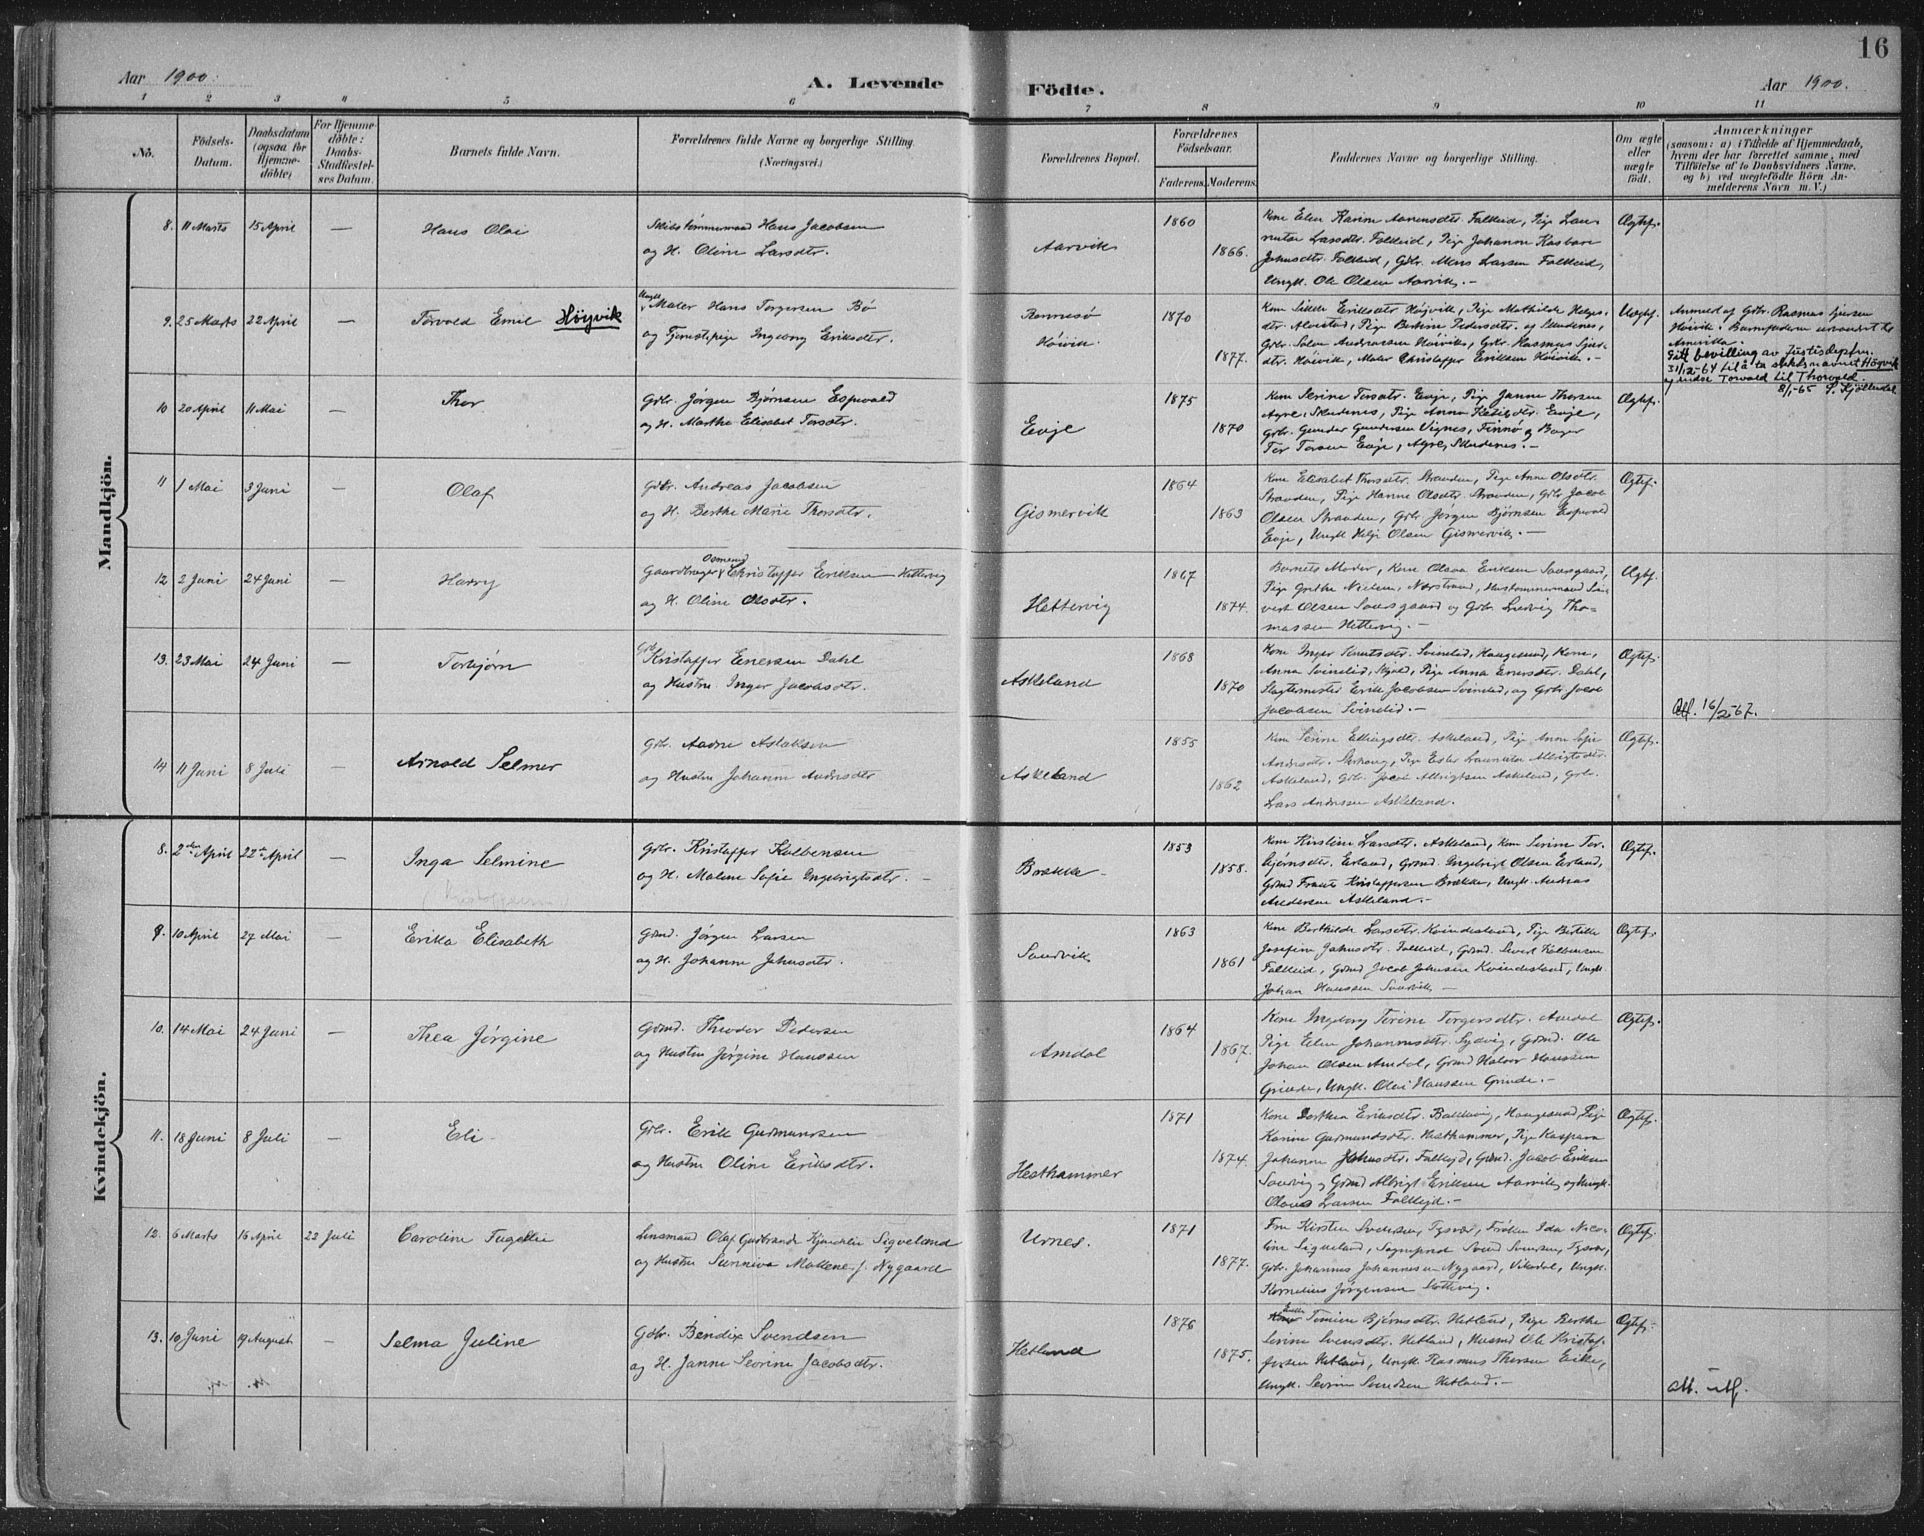 16
Aar 1900.
A. Levende
Födte.
Aar 1900.
1 2 3 4 5 6 7 8 9 10 11
No.
Födsels-
Datum.
Daabsdatum
(ogsaa for
Hjemme-
döbte)
For Hjemme-
döbte:
Daabs-
Stadfæstel-
ses Datum.
Barnets fulde Navn.
Forældrenes fulde Navne og borgerlige Stilling.
(Næringsvei.)
Forældrenes Bopæl.
Forældrenes
Födselsaar.
Faderens. Moderens.
Faddernes Navne og borgerlige Stilling.
Om ægte
eller
uægte
födt.
Anmærkninger
(saasom: a) i Tilfælde af Hjemmedaab,
hvem der har forrettet samme, med
Tilföielse af to Daabsvidners Navne,
og b) ved uægtefödte Börn An-
melderens Navn m. V.)
Mandkjön.
8. 11 Marts 15 April — Hans Olai
Skibstømmermand Hans Jacobsen
og H. Oline Larsdtr.
Aarvik
1860
1866.
Kone Elen Karine Aanensdtr. Falkeid, Pige Lau-
Larsdtr. Falkeid, Pige Johanne Kasbara
Johnsdtr. Falkeid, Gbr. Mons Larsen Falkeid,
Ungk. Ole Olsen Aarvik. —
Ægtef.
9. 25 Marts 22 April — Torvald Emil Höyvik
Ungk. Maler Hans Torgersen Bø
og Tjenestepige Ingeborg Eriksdtr.
Høivik.
1870
1877.
Kone Sille Eriksdtr. Højvik, Pige Mathilde Helges-
dtr. Alvestad, Pige Bertine Pedersdtr. og Skudenes,
Gbr. Salon Andreassen Høivik, Gbr. Rasmus Sjur-
Høivik, Maler Christoffer Eriksen Høivik. —
Uægtef.
Anmed af Gbr. Rasmus Sjursen
Høivik. Barnefaderen udvandret til
Amerika.
Gitt bevilling av Justisdeptm.
31/12-64 til å ta slektsnavnet Höyvik
og endre Torvald til Thorvald.
8/1-65 S. Fjöllendal
10 20 April 11 Mai — Thor
Gbr. Jørgen Bjørnsen Espevold
og H. Marthe Elisabet Torsdtr.
Eøje
1875
1870
Kone Serine Torsdtr. Eøje, Pige Janne Thorsen
Agre, Skudenes, Pige Anna Ketilsdtr. Eøje,
Gbr. Gunder Gundersen Vignes, Finnø og Bager
Tor Torsen Eøje, Agre, Skudenes. —
Ægtef.
11 1 Mai 3 Juni — Olaf
Gbr. Andreas Jacobsen
og H. Berthe Marie Thorsdtr.
Gismervik
1864
1863
Kone Elisabet Thorsdtr. Stranden, Pige Anne Olsdtr.
Stranden, Pige Hanne Olsdtr. Stranden, Gbr. Jacob
Olsen Stranden, Gbr. Jørgen Bjørnsen Espevold
Eøje, Ungk. Helge Olsen Gismervik. —
Ægtef.
12 2 Juni 24 Juni — Harry
Gaardbruger Christoffer Eriksen Hettervig
og H. Oline Olsdtr.
Hettervig
1867
1874.
Barnets Moder, Kone Olava Eriksen Saursgaard,
Pige Grethe Nielsen, Nærstrand, Hustømmermand Sie-
vert Olsen Saursgaard og Gbr. Ludvig Tho-
massen Hettervig. —
Ægtef.
13. 23 Mai 24 Juni — Torbjørn
Gbr. Kristoffer Enersen Dahl
og Hustru Inger Jacobsdtr.
Askeland
1868
1870
Kone Inger Knutsdtr. Svinelid, Haugesund, Kone,
Anna Svinelid, Skjold, Pige Anna Enersdtr. Dahl,
Slagtermester Erik Jacobsen Svinelid, og Gbr. Jacob
Jacobsen Svinelid. —
Ægtef.
Att. 16/2-67.
14 11 Juni 8 Juli — Arnold Selmer
Gbr. Aadne Aslaksen
og Hustru Johanne Andersdtr
Askeland
1855
1862
Kone Serine Ellingsdtr. Askeland, Pige Anne Sofie
Andersdtr. Sørhaug, Pige Ester Albrigtsdtr.
Askeland, Gbr. Jacob Albrigtsen Askeland, Gbr.
Lars Andersen Askeland.
Ægtef.
Kvindekjön.
8. 2den April 22de April — Inga Selmine
Gbr. Kristoffer Kolbensen
og H. Malene Sofie Ingebrigtsdtr. —
Brække
1853
1858.
Kone Kirstine Larsdtr. Askeland, Kone Serine Tor-
bjørnsdtr. Erland, Grmd. Ingebrigt Olsen Erland,
Grmd Frants Kristoffersen Brække, Ungk. Andreas
Andersen Askeland. —
Ægtef.
9. 10 April 27 Mai — Erika Elisabeth
Grmd. Jørgen Larsen
og H. Johanne Johnsdtr.
Sandvik
1863
1861
Kone Berthilde Larsdtr. Kvindesland, Pige Bertille
Josefine Johnsdtr. Falkeid, Grmd. Sivert Kolbensen
Falkeid, Grmd Jacob Johnsen Kvindesland, Ungk.
Johan Hanssen Sandvik —
Ægtef.
10. 14 Mai 24 Juni — Thea Jørgine
Grmd. Theodor Pedersen
og Hustru Jørgine Hanssen
Amdal
1864
1867.
Kone Ingeborg Terine Torgersdtr. Amdal
Pige Elen Johannesdtr. Sydvig, Grmd. Ole
Johan Olsen Amdal, Grmd Halvor Hanssen
Grinde, Ungk. Olai Hanssen Grinde. —
Ægtef.
11. 18 Juni 8 Juli — Eli
Gbr. Erik Gudmundsen
og Hustru Oline Eriksdtr.
Hesthammer
1871
1874.
Kone Dorthea Eriksdtr. Haugesund, Pige
Karine Gudmundsdtr. Hesthammer, Pige Kaspara
Johanne Johnsdtr. Falkeid, Grmd. Jacob Eriksen
Sandvig og Grmd Albrigt Eriksen Aarvik og Ungk.
Olaus Larsen Falkeid. —
Ægtef.
12. 6 Marts 16 April 22 Juli Caroline Fugellie
Lensmand Olaf Gudbrands Sigveland
og Hustru Sunniva Mallene f. Nygaard
Urnes.
1871
1877.
Fru Kirsten Svendsen, Tysvær, Frøken Ida Nico-
line Sigveland, Sogneprest Svend Svendsen, Tysvær,
Gbr. Johannes Johannesen Nygaard, Vikedal, Ungk.
Kornelius Jørgensen Slottevig.
Ægtef.
13. 10 Juni 19 August — Selma Juline
Gbr. Bendix Svendsen
og H. Janne Severine Jacobsdtr.
Hetland
1876
1875.
Enke Tomine Bjørnsdtr. Hetland, Pige Berthe
Serine Svensdtr. Hetland, Husmd Ole Kristof-
fersen Hetland, Ungk. Rasmus Thorsen Eike,
Ungk. Severin Svendsen Hetland. —
Ægtef.
att. utf.